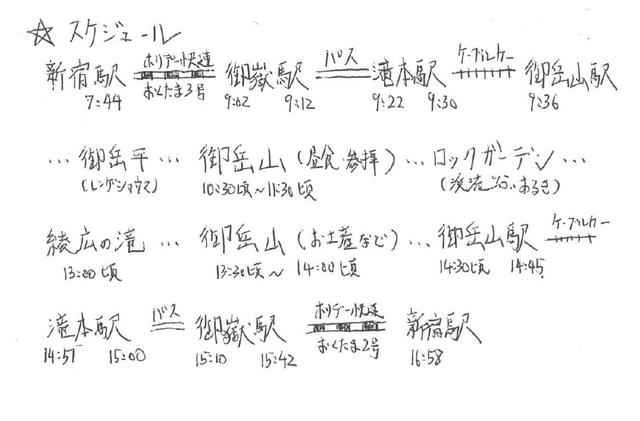 ☆ スケジュール
新宿駅 ホリデー快速 おくたま3号 御嶽駅 バス 滝本駅 ケーブルカー 御岳山駅
7:44 9:02 9:12 9:22 9:30 9:36
… 御岳平 … 御岳山 (昼食・参拝) … ロックガーデン …
(レンゲショウマ) 10:30頃～11:30頃 (渓流沿いあるき)
綾広の滝 … 御岳山 (お土産など) … 御岳山駅 ケーブルカー
13:00頃 13:30頃～14:00頃 14:30頃 14:45
滝本駅 バス 御嶽駅 ホリデー快速 おくたま2号 新宿駅
14:51 15:00 15:10 15:42 16:58